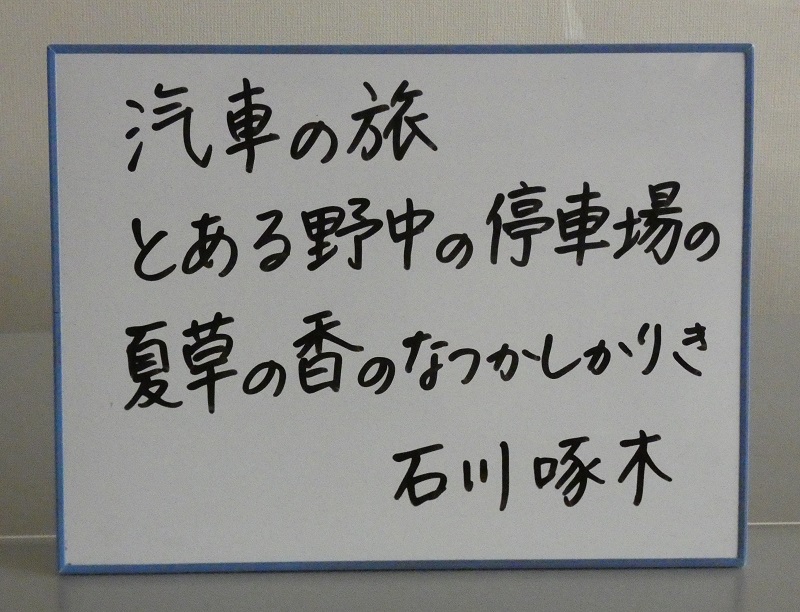 汽車の旅
とある野中の停車場の
夏草の香のなつかしかりき
石川啄木